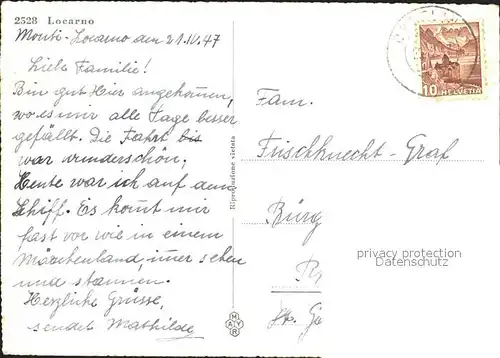 2528 Locarno
Monti-Locarno den 21.IV.47
Liebe Familie!
Bin gut Hier angekommen,
wo es mir alle Tage besser
gefällt. Die Fahrt bis
war wunderschön.
Heute war ich auf dem
Schiff. Es kommt mir
fast vor wie in einem
Märchenland, immer sehen
und staunen.
Herzliche Grüsse,
sendet Mathilde
Riproduzione vietata
MAYR
10 HELVETIA
Fam.
Frischknecht-Graf
Bürg
St. Ga
privacy protection
Datenschutz